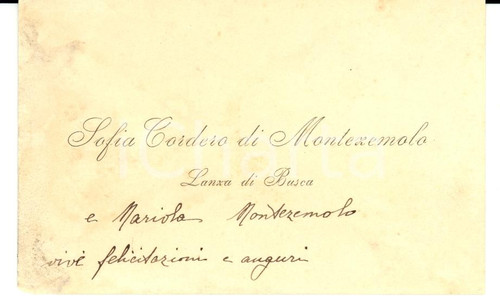 Sofia Cordero di Montezemolo
Lanza di Busca
e Mariola Montezemolo
vive felicitazioni e auguri